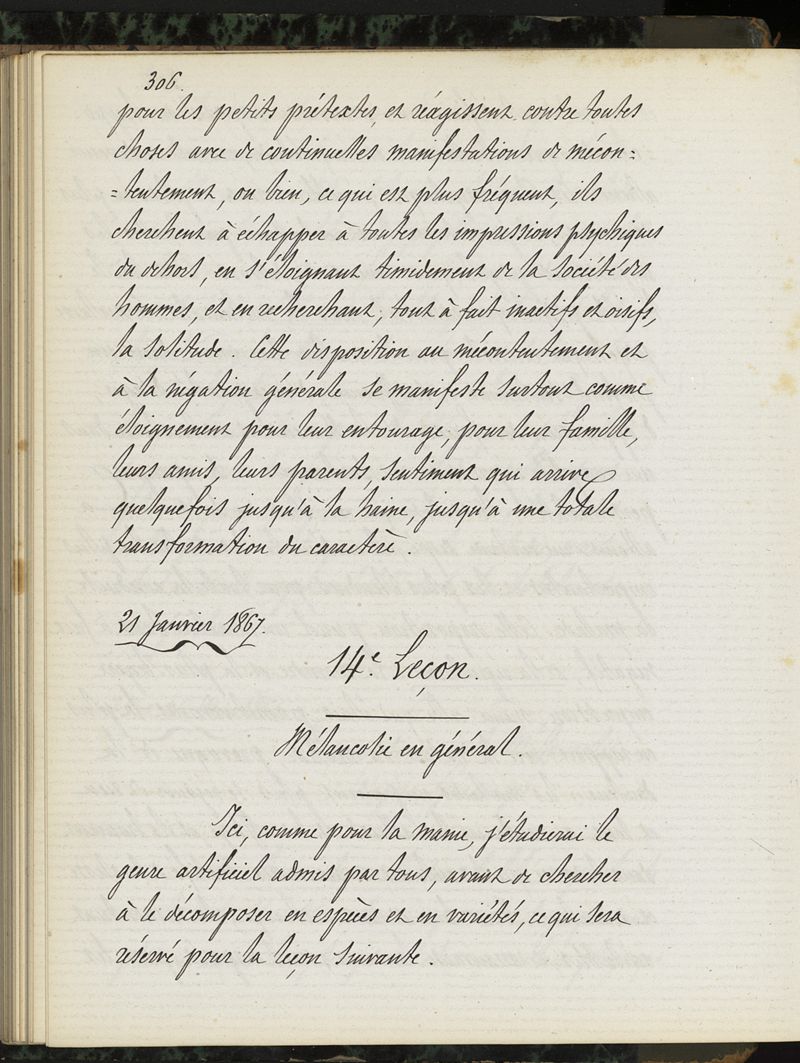 306.
pour les petits prétextes, et réagissent contre toutes
choses avec de continuelles manifestations de mécon=
=tentement, ou bien, ce qui est plus fréquent, ils
cherchent à échapper à toutes les impressions psychiques
du dehors, en s'éloignant timidement de la société des
hommes, et en recherchant, tout à fait inactifs et oisifs,
la solitude. Cette disposition au mécontentement et
à la négation générale se manifeste surtout comme
éloignement pour leur entourage, pour leur famille,
leurs amis, leurs parents, sentiment qui arrive
quelquefois jusqu'à la haine, jusqu'à une totale
transformation du caractère.
21 Janvier 1867.
14e. Leçon.
Mélancolie en général.
Ici, comme pour la manie, j'étudierai le
genre artificiel admis par tous, avant de chercher
à le décomposer en espèces et en variétés, ce qui sera
réservé pour la leçon suivante.